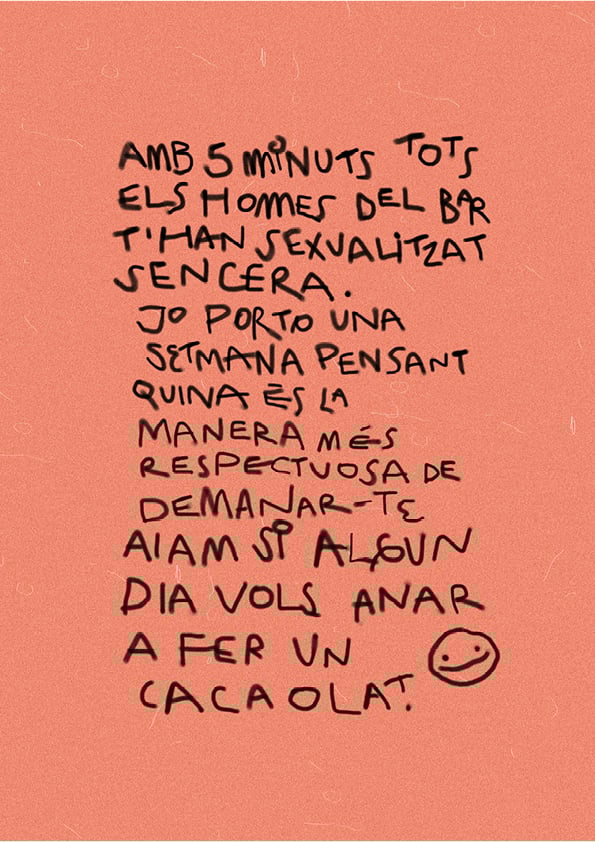 AMB 5 MiNUTS TOTS
ELS HOMES DEL BAR
T'HAN SEXUALiTZAT
SENCERA.
JO PORTO UNA
SETMANA PENSANT
QUINA ÉS LA
MANERA MÉS
RESPECTUOSA DE
DEMANAR-TE
AIAM Si ALGUN
DIA VOLS ANAR
A FER UN
CACAOLAT.